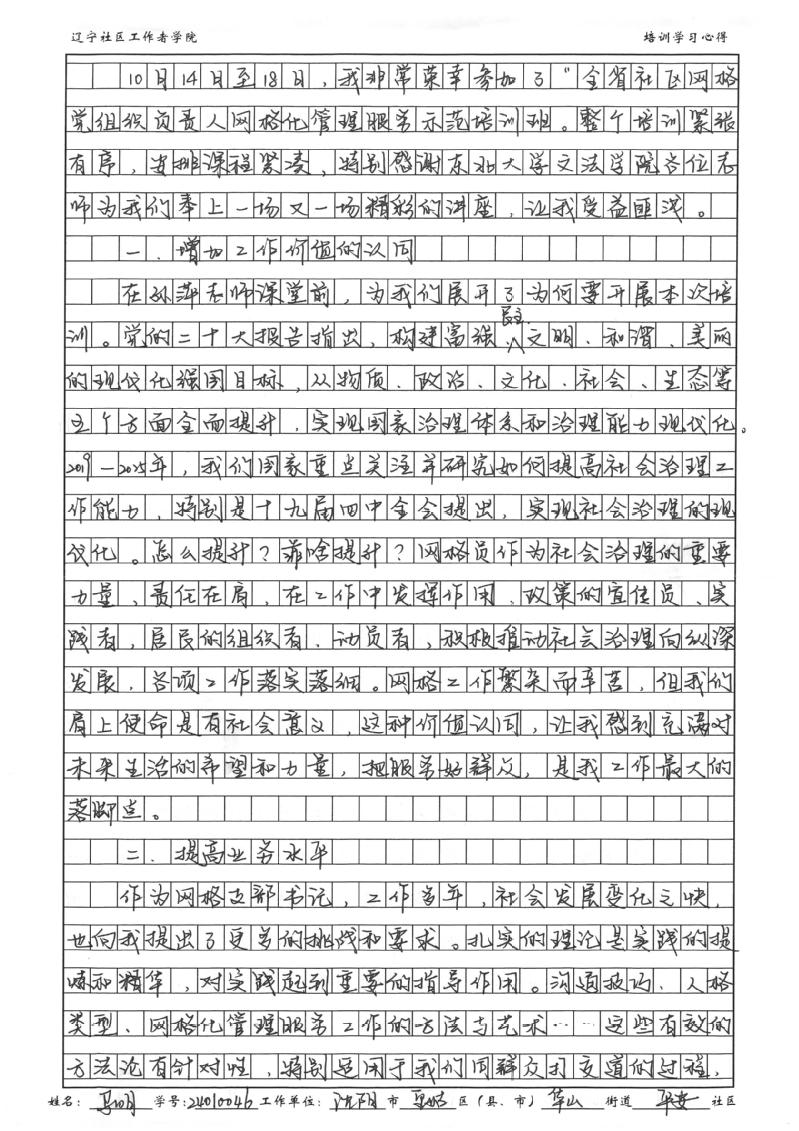 辽宁社区工作者学院 培训学习心得
10月14日至18日，我非常荣幸参加了"全省社区网格
党组织负责人网格化管理服务示范培训班。整个培训紧张
有序，安排课程紧凑，特别感谢东北大学文法学院各位老
师为我们奉上一场又一场精彩的讲座，让我受益匪浅。
一、增加工作价值的认同
在孙萍老师课堂前，为我们展开了为何要开展本次培
训。党的二十大报告指出，构建富强、民主、文明、和谐、美丽
的现代化强国目标，从物质、政治、文化、社会、生态等
五个方面全面提升，实现国家治理体系和治理能力现代化。
2019—2025年，我们国家重点关注并研究如何提高社会治理工
作能力，特别是十九届四中全会提出，实现社会治理的现
代化。怎么提升？靠啥提升？网格员作为社会治理的重要
力量，责任在肩，在工作中发挥作用、政策的宣传员、实
践者，居民的组织者、动员者，积极推动社会治理向纵深
发展，各项工作落实落细。网格工作繁杂而辛苦，但我们
肩上使命是有社会意义，这种价值认同，让我感到充满对
未来生活的希望和力量，把服务好群众，是我工作最大的
落脚点。
二、提高业务水平
作为网格支部书记，工作多年，社会发展变化之快，
也向我提出了更多的挑战和要求。扎实的理论是实践的提
炼和精华，对实践起到重要的指导作用。沟通技巧、人格
类型、网格化管理服务工作的方法与艺术……这些有效的
方法论有针对性，特别适用于我们同群众打交道的过程，
姓名： 学号：24010046 工作单位：沈阳 市 皇姑 区（县、市） 华山 街道 平安 社区